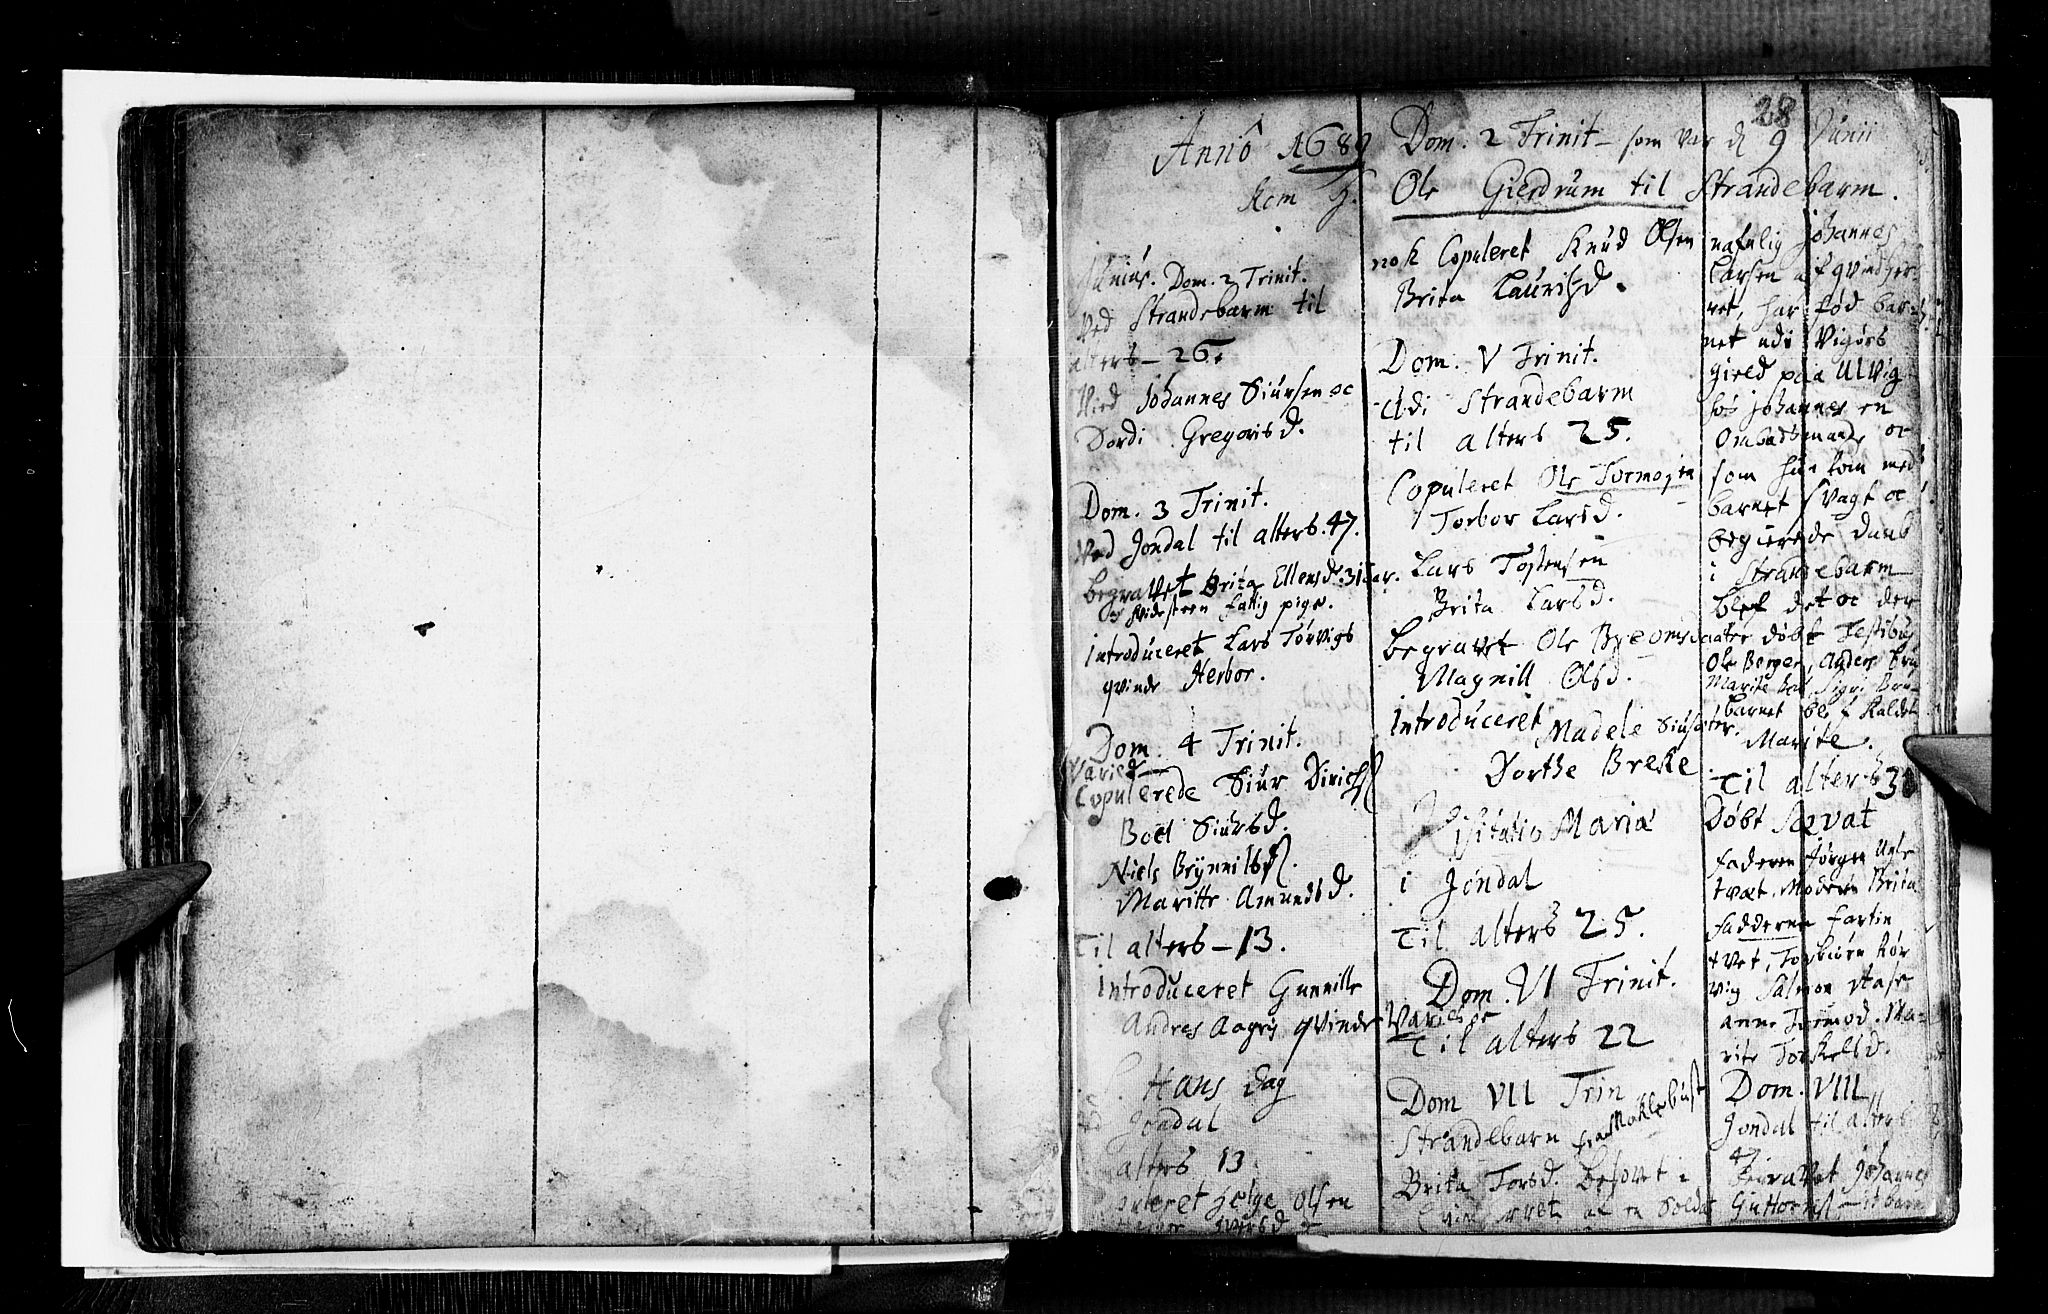 28
Anno 1689 Dom. 2 Trinit - som var d 9 Junii
Kom H. Ole Gierdrum til Strandebarm.
Junius. Dom. 2 Trinit.
Ved Strandebarm til
alters - 26.
Vied Johannes Siursen oc
Dordi Gregorisd.
Dom. 3 Trinit.
Ved Jondal til alters. 47.
begravet Brita Ellensd. 31 aar.
fattig pige.
introduceret Lars Torvigs
qvinde Herbor.
Dom. 4 Trinit.
Varied
Copulerede Siur Dirichs
Boel Siursd.
Niels Brynnilds
Maritte Amundsd.
Til alters - 13.
introduceret Gunnille
Andres Aagris qvinde
S. Hans dag
Jondal
alters 13
Helge Olsen
nok Copuleret Knud Olsen
Brita Lauritzd.
Dom. V Trinit.
Udi Strandebarm
til alters 25.
Copuleret Ole Tormosen
Torbor Larsd.
Lars Tostensen
Brita Larsd.
begravet Ole
Magnill Olsd.
introduceret Madele Siursdater.
Dorthe Breke
Visitatio Mariæ
i Jondal
Til alters 25.
Dom. VI Trinit.
Varie
Til alters 22
Dom VII Trin
Strandebarm fra Moklebust
Brita Torsd. besovet i
af en Soldat
nafnlig Johannes
Larsen af qvindher-
ret, har fød bar-
net udi Vigørs
gield paa Ulvig
hos Johannes en
Ombudsmand, oc
som hun kom med
barnet svagt oc
begierede daab
i Strandebarm
blef det oc der
døbt Testibus
Ole Berge, Anders
Marite Sigri
barnet blef kaldet
Marite.
Til alters 30
Døbt Savat
faderen Jørgen
tvæt. Moderen Brita
fadderne
tvet, Torbiørn Tør
vig Salmon
anne Tormod. Ma-
rite Torkelsd.
Dom. VIII
Jondal til alters
47
Begravet Johannes
Guttorms - it barn